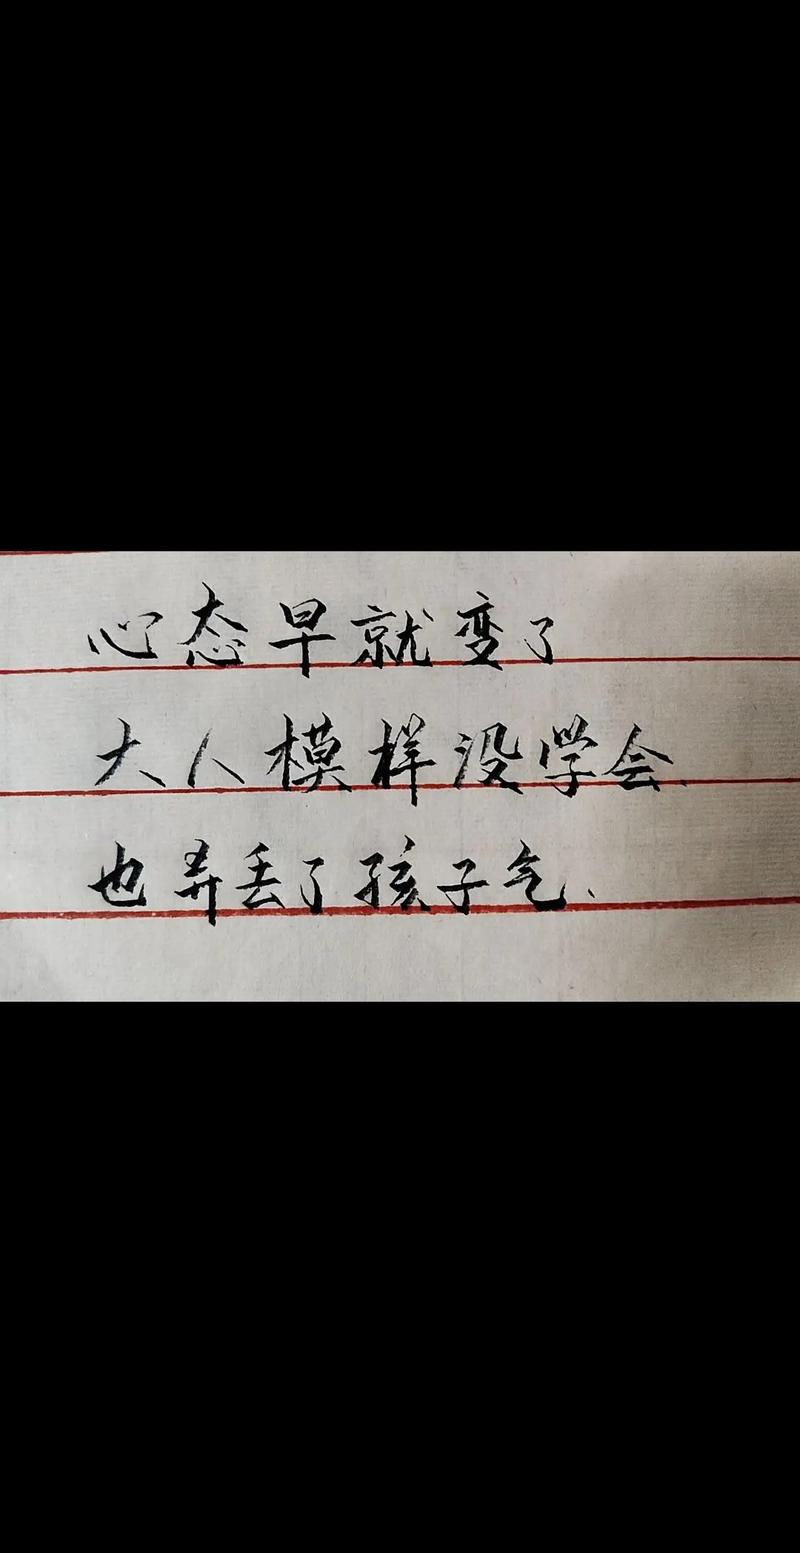 心态早就变了
大人模样没学会.
也弄丢了孩子气、